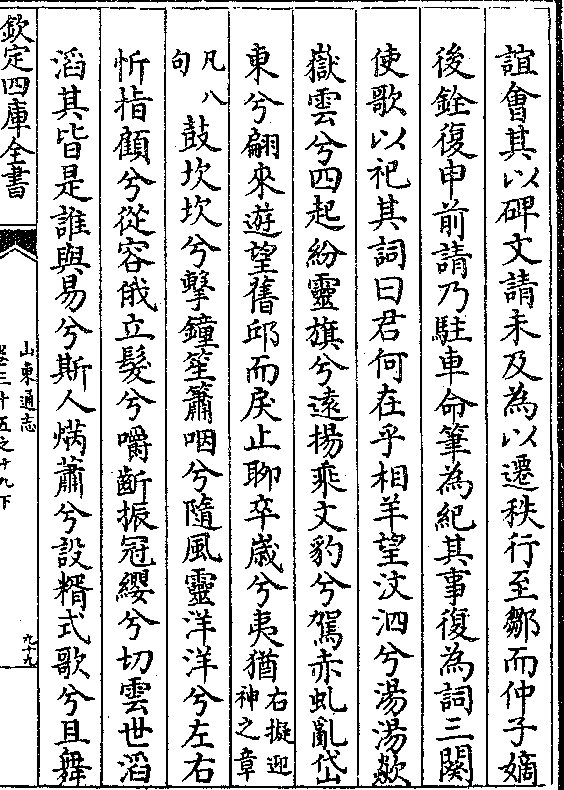 誼會其以碑文請未及為以遷秩行至鄒而仲子嫡
後銓復申前請乃駐車命筆為紀其事復為詞三闋
使歌以祀其詞曰君何在乎相羊望汶泗兮湯湯歘
嶽雲兮四起紛靈旗兮遠揚乘文豹兮駕赤虬亂岱
東兮翩來遊望舊邱而戾止聊卒嵗兮夷猶右擬迎神之章
凡八句鼓坎坎兮擊鐘笙簫咽兮隨風靈洋洋兮左右
忻指顧兮從容俄立髮兮嚼齗振冠纓兮切雲世滔
滔其皆是誰與易兮斯人焫蕭兮設糈式歌兮且舞
欽定四庫全書
山東通志
卷三十五之十九下
九十九